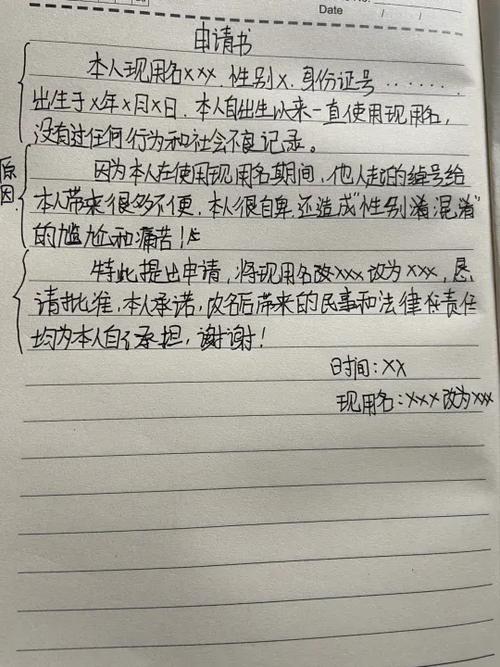 Date / /
申请书
本人现用名xxx.性别x.身份证号.......
出生于x年x月x日.本人自出生以来一直使用现用名,
没有过任何行为和社会不良记录。
原因
因为本人在使用现用名期间,他人起的绰号给
本人带来很多不便.本人很自卑.还造成"性别淆混淆"
的尴尬和痛苦!
特此提出申请,将现用名改xxx改为xxx,恳
请批准,本人承诺,改名后带来的民事和法律任责任
均为本人自行承担,谢谢!
时间:xx
现用名:xxx改为xxx